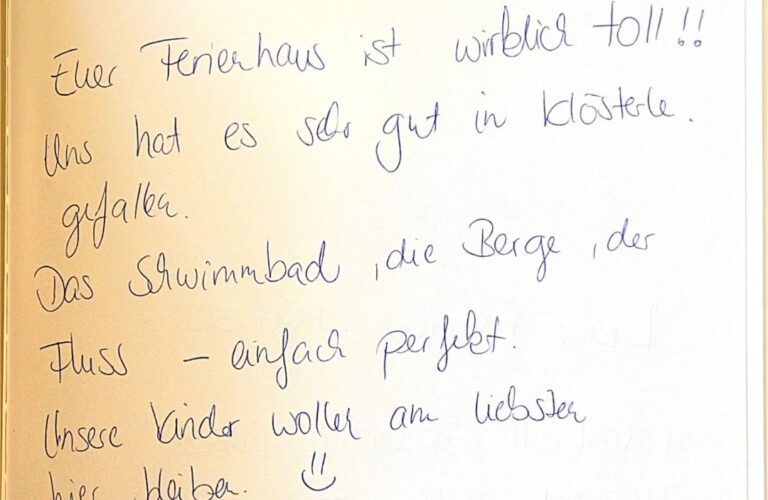 Euer Ferienhaus ist wirklich toll!!
Uns hat es sehr gut in Klösterle.
gefallen.
Das Schwimmbad, die Berge, der
Fluss – einfach perfekt.
Unsere Kinder wollen am liebsten
hier bleiben. ü